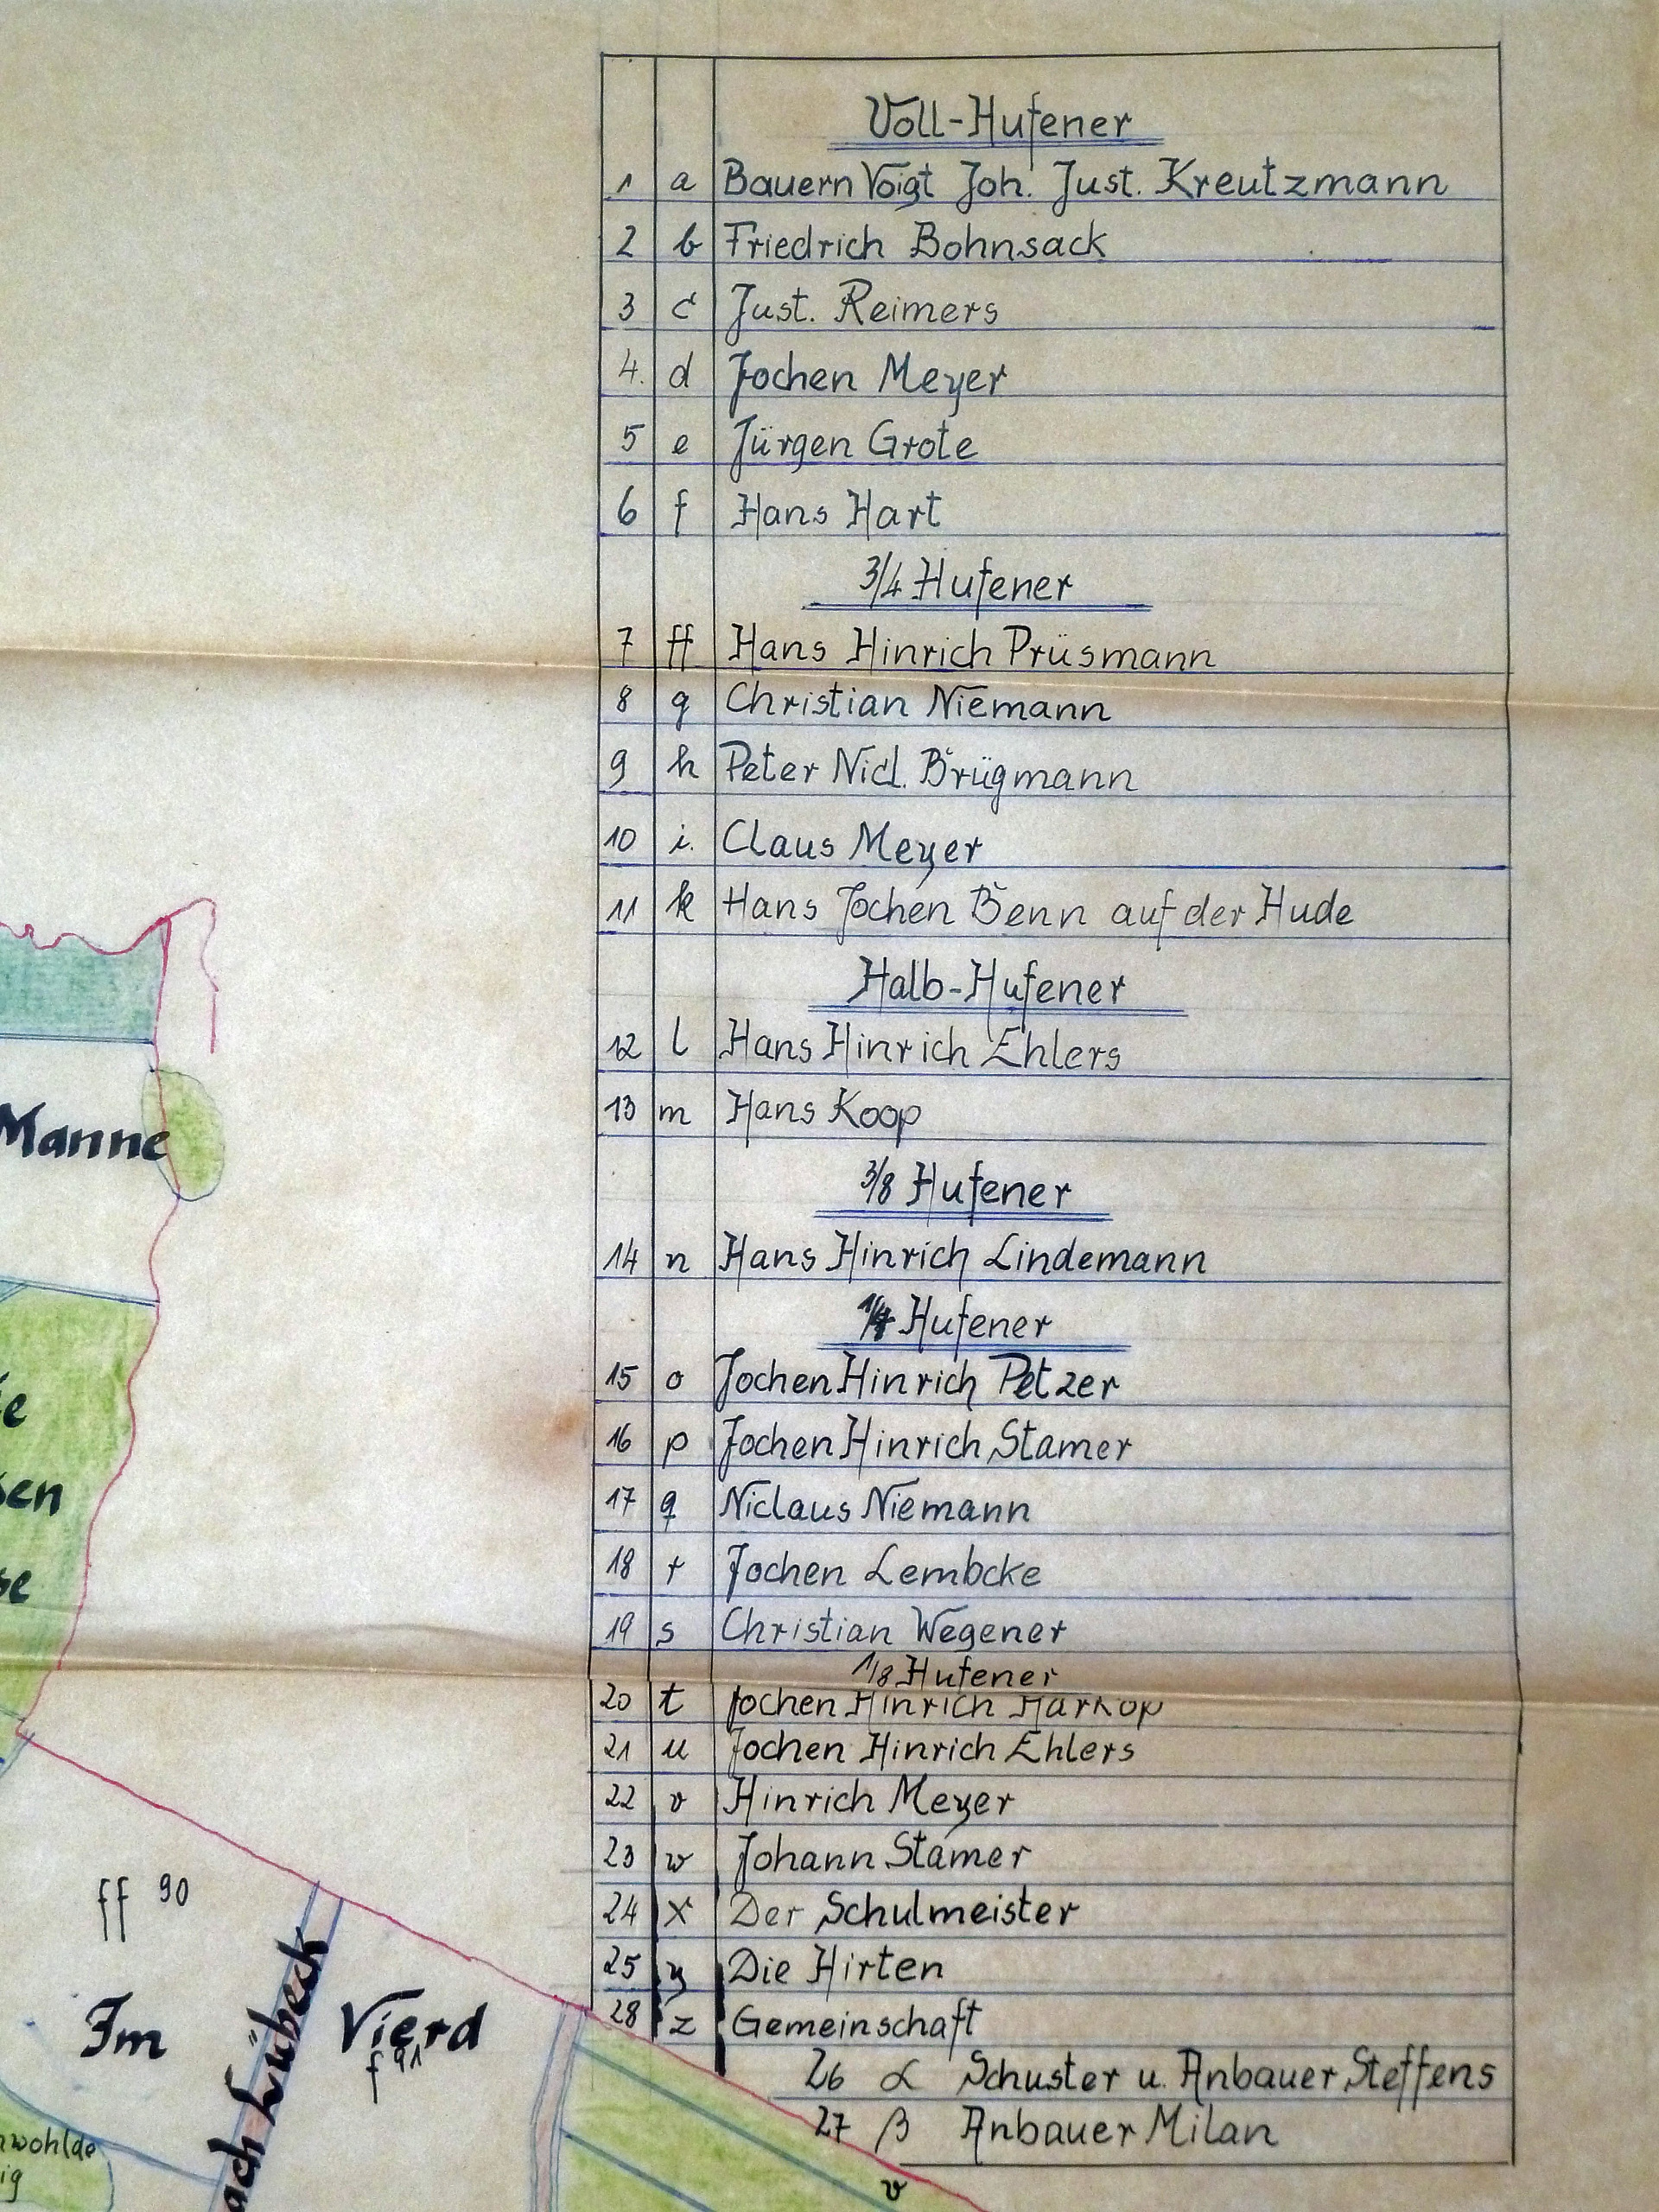 Voll-Hufener
1 a Bauern Voigt Joh. Just. Kreutzmann
2 b Friedrich Bohnsack
3 c Just. Reimers
4. d Jochen Meyer
5 e Jürgen Grote
6 f Hans Hart
3/4 Hufener
7 ff Hans Hinrich Prüsmann
8 g Christian Niemann
9 h Peter Nicl. Brügmann
10 i. Claus Meyer
11 k Hans Jochen Benn auf der Hude
Halb-Hufener
12 l Hans Hinrich Ehlers
13 m Hans Koop
3/8 Hufener
14 n Hans Hinrich Lindemann
1/4 Hufener
15 o Jochen Hinrich Petzer
16 p Jochen Hinrich Stamer
17 q Niclaus Niemann
18 r Jochen Lembcke
19 s Christian Wegener
1/8 Hufener
20 t Jochen Hinrich Harkop
21 u Jochen Hinrich Ehlers
22 v Hinrich Meyer
23 w Johann Stamer
24 x Der Schulmeister
25 y Die Hirten
28 z Gemeinschaft
26 α Schuster u. Anbauer Steffens
27 β Anbauer Milan
Manne
ff 90
Im
Vierd
f 91
ach Lübeck
v